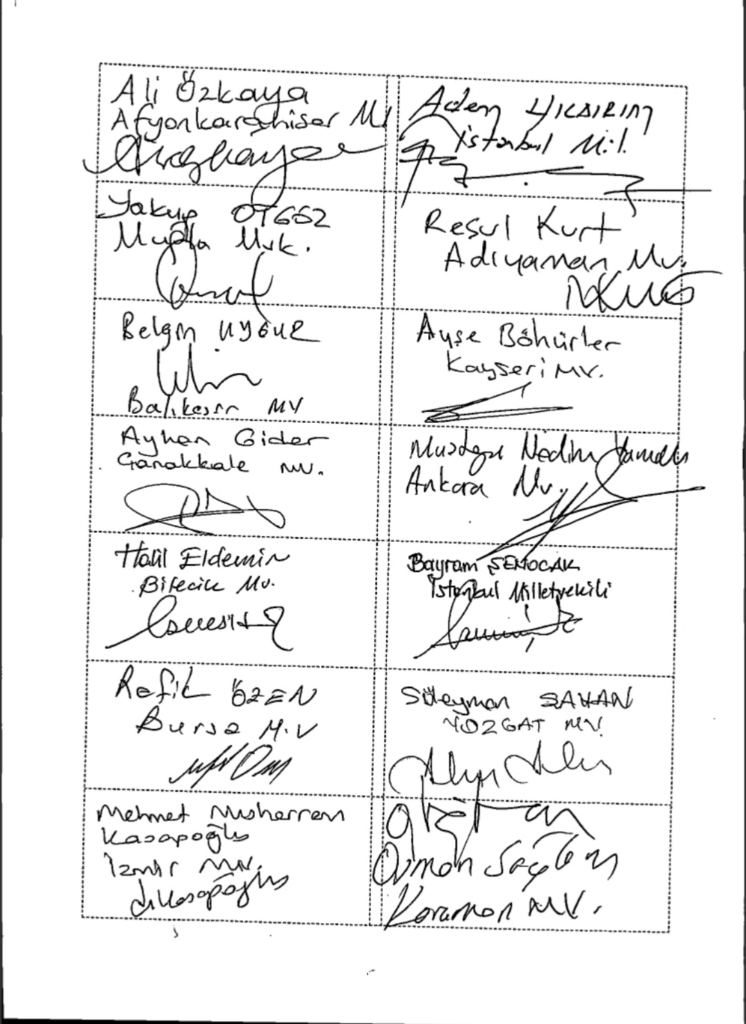 Ali Özkaya
Afyonkarahisar Mv
Adem YILDIRIM
İstanbul Mil.
Yakup OTGÖZ
Muğla Mvk.
Resul Kurt
Adıyaman Mv.
Belgin UYGUR
Balıkesir MV
Ayşe Böhürler
Kayseri MV.
Ayhan Gider
Çanakkale MV.
Mustafa Nedim Yamalı
Ankara Mv.
Halil Eldemir
Bilecik Mv.
Bayram ŞENOCAK
İstanbul Milletvekili
Refik ÖZEN
Bursa M.V
Süleyman ŞAHAN
YOZGAT MV.
Mehmet Muharrem
Kasapoğlu
İzmir MV.
Osman Sağlam
Karaman MV.